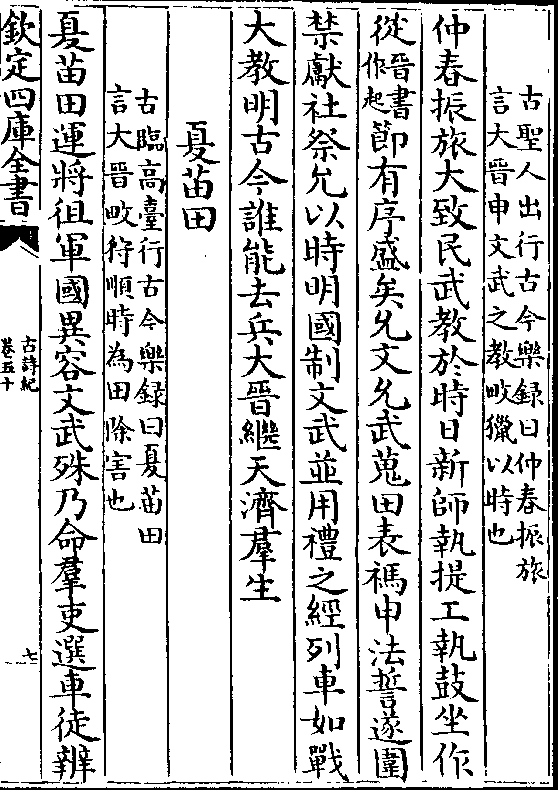 古聖人出行古今樂録曰仲春振旅
言大晉申文武之教畋獵以時也
仲春振旅大致民武教於時日新師執提工執鼓坐作
從晉書作起節有序盛矣允文允武蒐田表禡申法誓遂圍
禁獻社祭允以時明國制文武並用禮之經列車如戰
大教明古今誰能去兵大晉繼天濟羣生
夏苗田
古臨高臺行古今樂録曰夏苗田
言大晉畋狩順時為田除害也
夏苗田運將徂軍國異容文武殊乃命羣吏選車徒辨
欽定四庫全書
古詩紀
卷五十
七